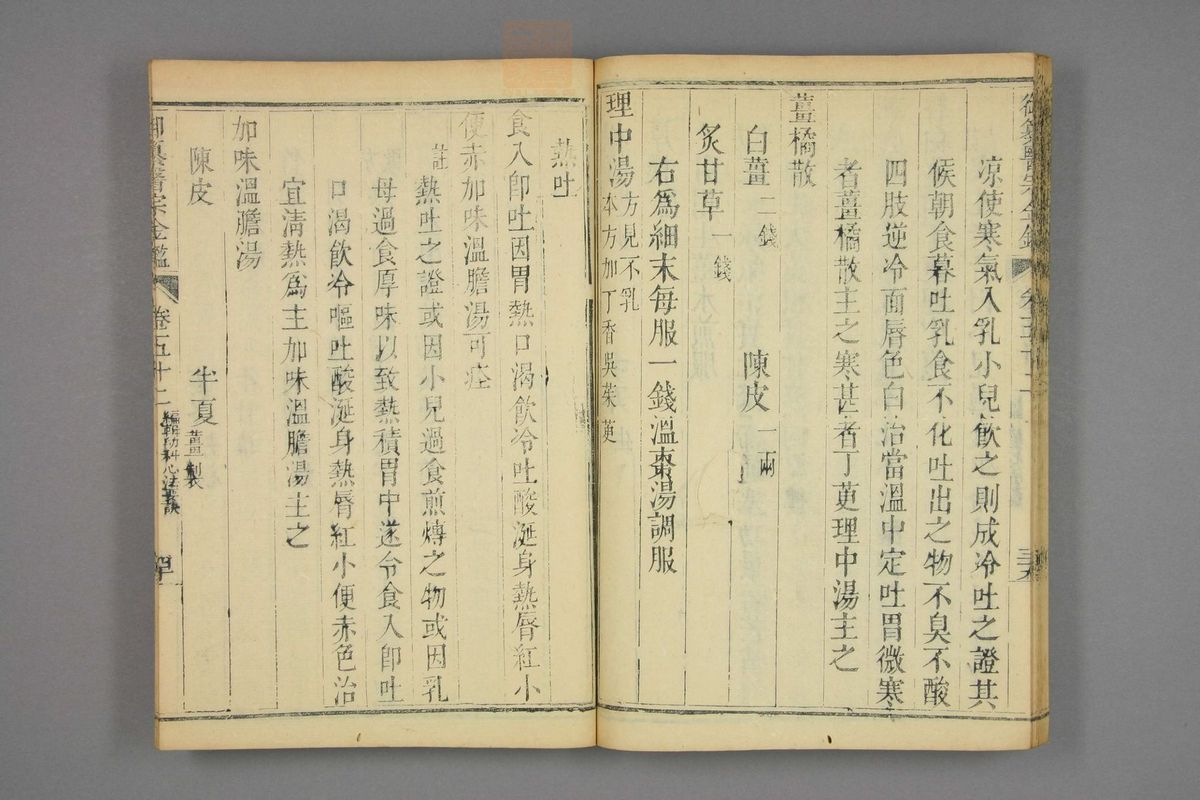 御纂醫宗金鑑
卷五十二
涼使寒氣入乳小兒飲之則成冷吐之證其
候朝食暮吐乳食不化吐出之物不臭不酸
四肢逆冷面唇色白治當溫中定吐胃微寒
者薑橘散主之寒甚者丁萸理中湯主之
薑橘散
白薑二錢 陳皮一兩
炙甘草一錢
右爲細末每服一錢溫棗湯調服
理中湯方見不乳
本方加丁香吳茱萸
熱吐
食入卽吐因胃熱口渴飲冷吐酸涎身熱唇紅小
便赤加味溫膽湯可痊
註熱吐之證或因小兒過食煎煿之物或因乳
母過食厚味以致熱積胃中遂令食入卽吐
口渴飲冷嘔吐酸涎身熱唇紅小便赤色治
宜淸熱爲主加味溫膽湯主之
加味溫膽湯
陳皮 半夏薑製
御纂醫宗金鑑 卷五十二 編輯幼科心法要訣